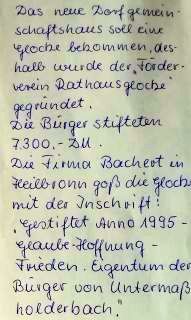 Das neue Dorfgemein-
schaftshaus soll eine
Glocke bekommen, des-
halb wurde der „Förder-
verein Rathausglocke"
gegründet.
Die Bürger stifteten
7.300.- DM.
Die Firma Bachert in
Heilbronn goß die Glocke
mit der Inschrift:
„Gestiftet Anno 1995 -
Glaube-Hoffnung-
Frieden. Eigentum der
Bürger von Untermaß-
holderbach."